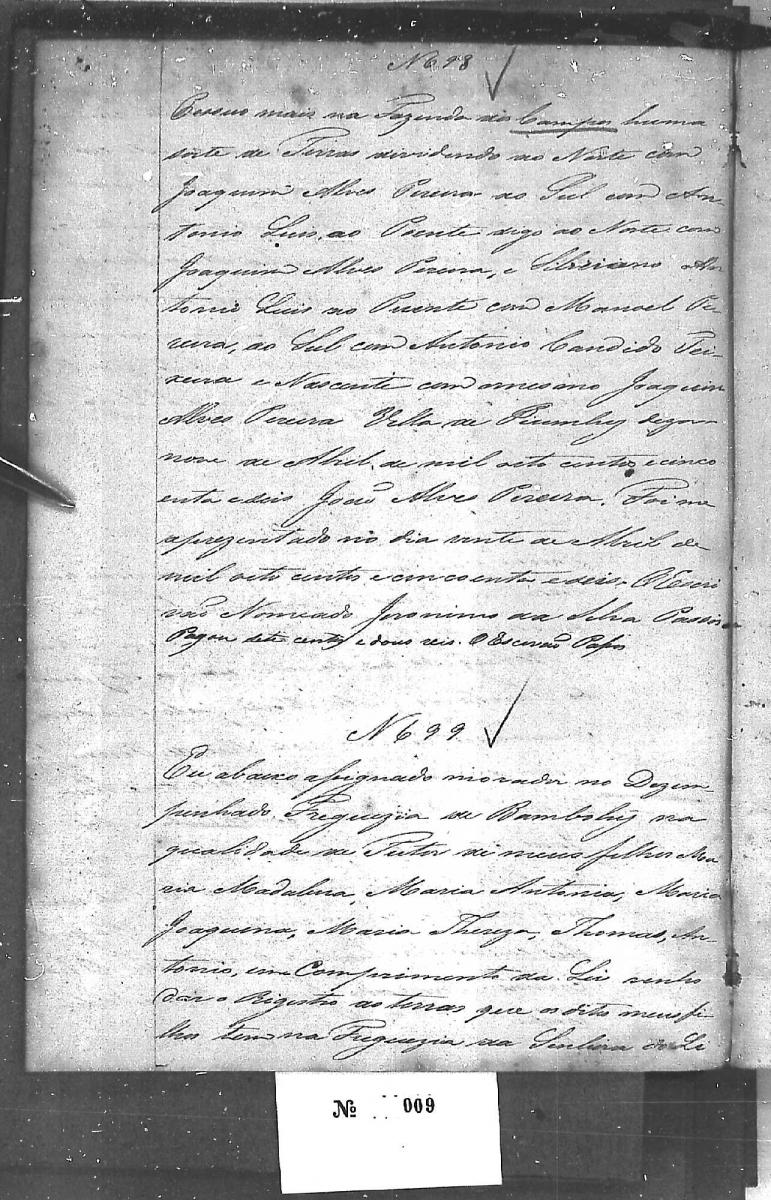 N 698
Possuo mais na Fazenda dos Campos huma
sorte de Terras dividindo ao Norte com
Joaquim Alves Pereira ao Sul com An-
tonio Luis, ao Poente digo ao Norte com
Joaquim Alves Pereira, e An
tonio Luis ao Puente com Manoel Pe-
reira, ao Sul com Antonio Candido Tei-
xeira e Nascente com omesmo Joaquim
Alves Pereira Villa de Piumhy dezan
nove de Abril de mil oito centos e cinco
enta edois João Alves Pereira. Foi me
aprezentado no dia vinte de Abril de
mil oito centos e cincoenta edois. O Escri
vaõ Nomeado Jeronimo da Silva Passos
Pagou sete centos e dous reis. O Escrivaõ Passos
N 699
Eu abaixo assignado morador no Dezem
penhado Freguezia de Bambohy na
qualidade de Tutor de meus filhos Ma
ria Madalena, Maria Antonia, Maria
Joaquina, Maria Thereza, Thomas, An-
tonio, em Comprimento da Lei venho
dar o Rigistro as terras que os ditos meus fi
lhos tem na Freguezia da Senhora do Li
Nº 009